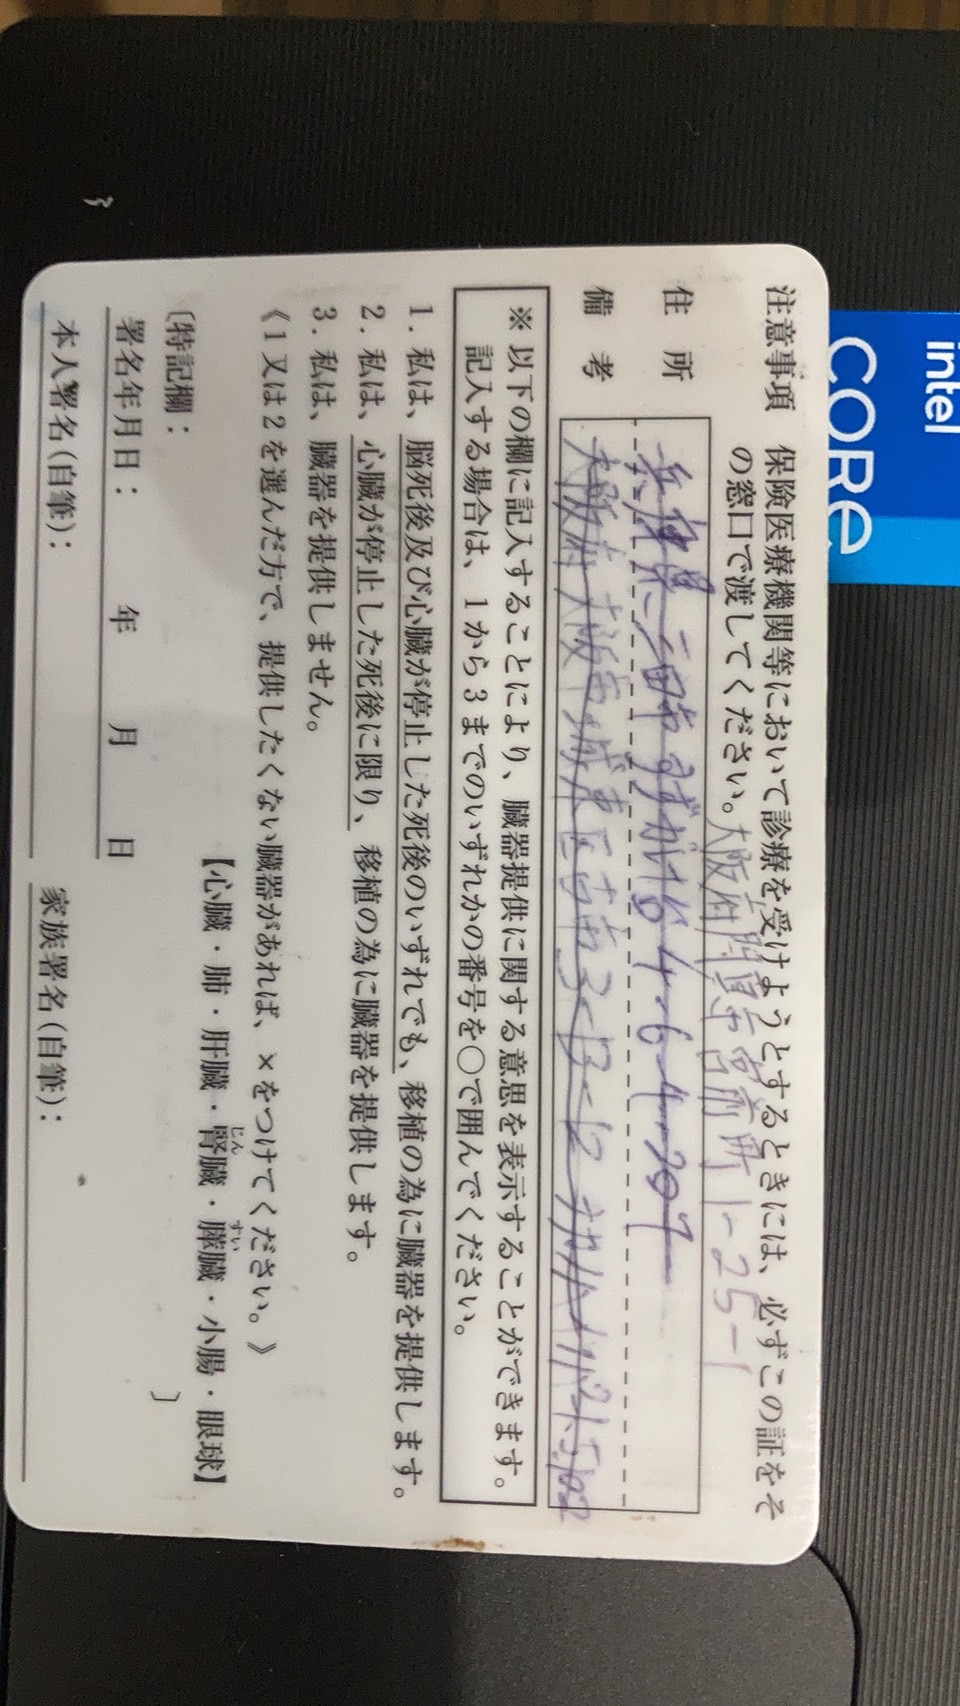 intel
CORe
注意事項　保険医療機関等において診療を受けようとするときには、必ずこの証をそ
の窓口で渡してください。
大阪府門真市宮前町1-25-1
住所
兵庫県三田市すずかけ台4-6-4-207
備考
大阪府大阪市城東区
※以下の欄に記入することにより、臓器提供に関する意思を表示することができます。
記入する場合は、1から3までのいずれかの番号を○で囲んでください。
1. 私は、脳死後及び心臓が停止した死後のいずれでも、移植の為に臓器を提供します。
2. 私は、心臓が停止した死後に限り、移植の為に臓器を提供します。
3. 私は、臓器を提供しません。
《1又は2を選んだ方で、提供したくない臓器があれば、×をつけてください。》
【心臓・肺・肝臓・腎臓・膵臓・小腸・眼球】
じん　すい
〔特記欄：　〕
署名年月日：　年　月　日
本人署名(自筆)：　家族署名(自筆)：